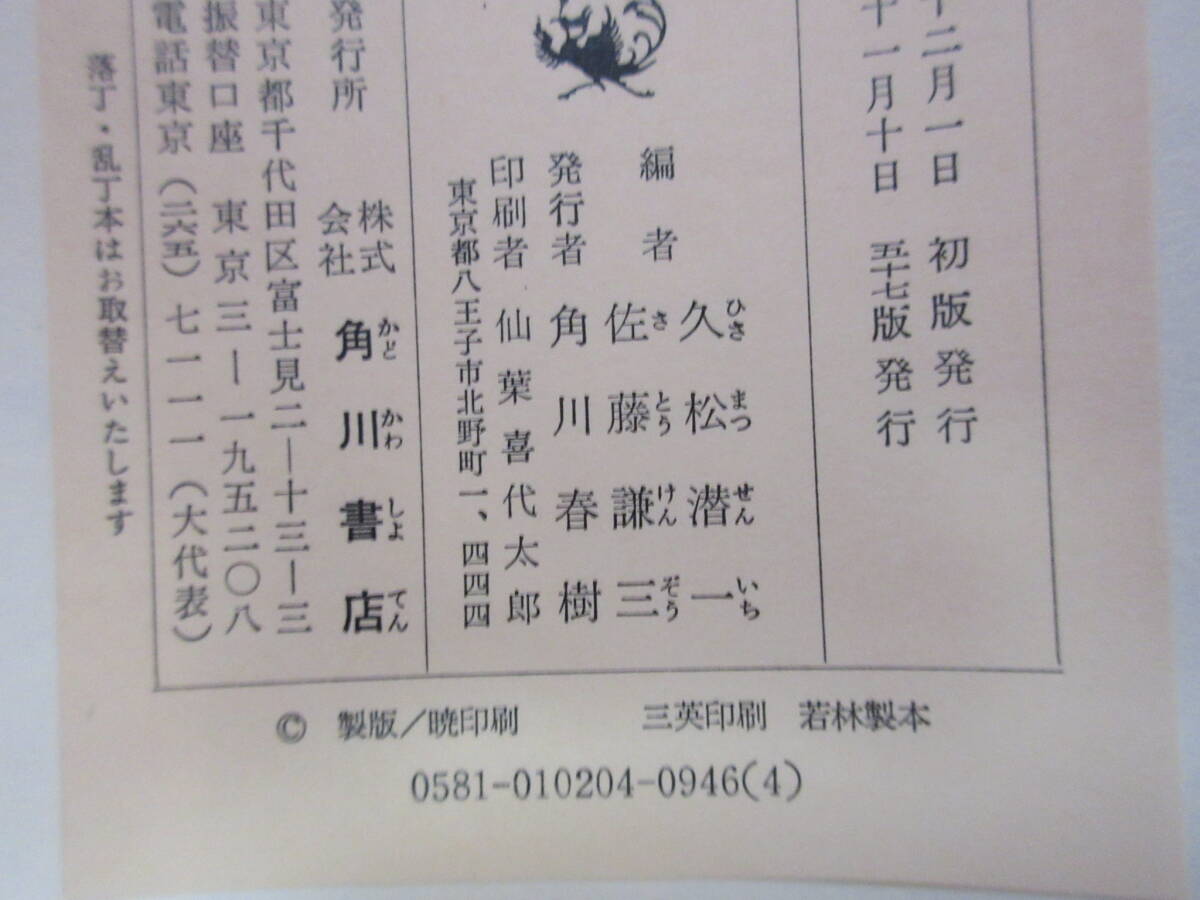 十二月一日 初版発行
十一月十日 五十七版発行
編者
久松潜一
ひさ まつ せん いち
佐藤謙三
さ とう けん ぞう
発行者 角川春樹
印刷者 仙葉喜代太郎
東京都八王子市北野町一、四四四
発行所
株式会社 角川書店
かど かわ しよ てん
東京都千代田区富士見二―十三―三
振替口座 東京三―一九五二〇八
電話東京(二六五)七一一一(大代表)
落丁・乱丁本はお取替えいたします
© 製版/暁印刷 三英印刷 若林製本
0581-010204-0946(4)